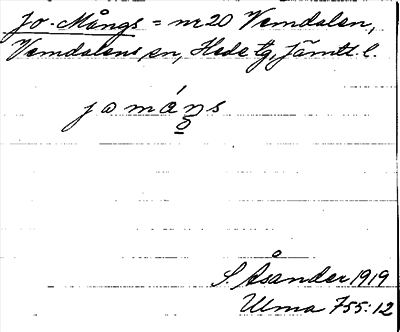 Jo-Mångs = nr 20 Vemdalen,
Vemdalens sn, Hede tg, Jämtl. l.
jomáŋs
S. Åsander 1919
Ulma 755:12